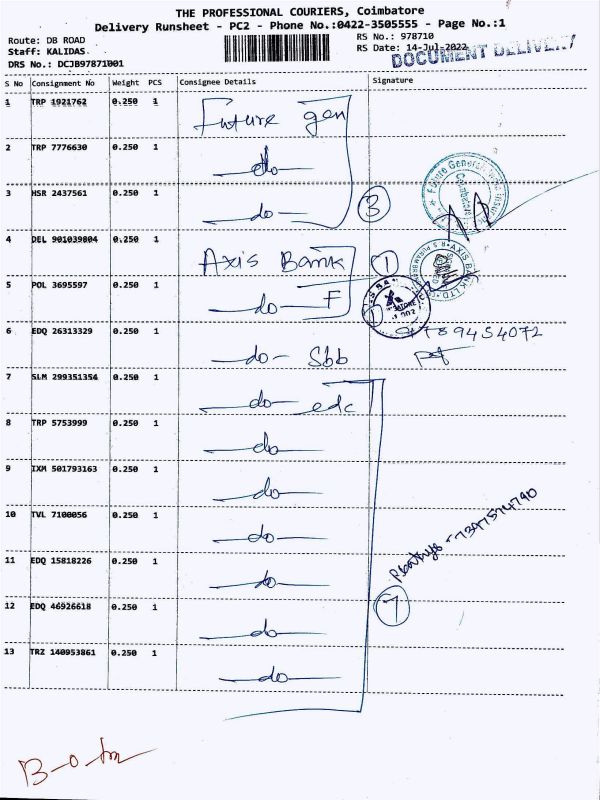 THE PROFESSIONAL COURIERS, Coimbatore
Delivery Runsheet - PC2 - Phone No.:0422-3505555 - Page No.:1
Route: DB ROAD
RS No.: 978710
Staff: KALIDAS
RS Date: 14-Jul-2022
DRS No.: DCJB97871001
DOCUMENT DELIVERY
S No Consignment No Weight PCS Consignee Details Signature
1 TRP 1921762 0.250 1 Future gen
2 TRP 7776630 0.250 1 -do-
3 HSR 2437561 0.250 1 -do- 3
4 DEL 901039804 0.250 1 Axis Bank 1
5 POL 3695597 0.250 1 -do- F 1
6 EDQ 26313329 0.250 1 -do- Sbb 9789454072
7 SLM 299351354 0.250 1 -do- edc
8 TRP 5753999 0.250 1 -do-
9 IXM 501793163 0.250 1 -do-
10 TVL 7100056 0.250 1 -do-
11 EDQ 15818226 0.250 1 -do-
12 EDQ 46926618 0.250 1 -do- 7
13 TRZ 140953861 0.250 1 -do-